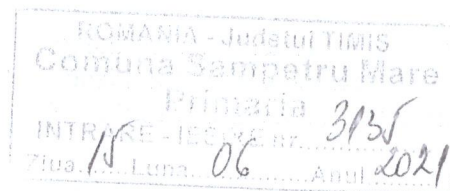 ROMANIA - Judetul TIMIS
Comuna Sampetru Mare
Primaria
INTRARE - IESIRE nr. 3135
Ziua 15 Luna 06 Anul 2021